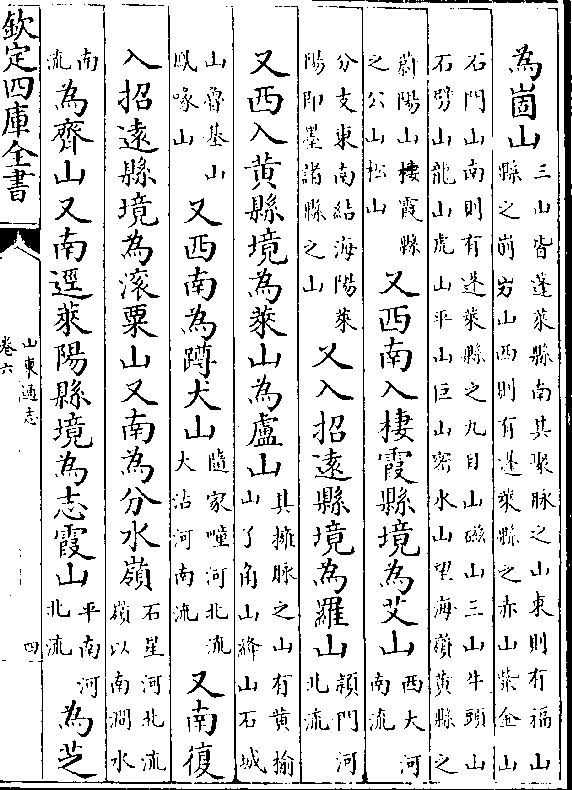 為崮山
三山皆蓬萊縣南其聚脉之山東則有福山
縣之崩山西則有蓬萊縣之赤山紫金山
石門山南則有蓬萊縣之九目山磁山三山牛頭山
石劈山龍山虎山平山巨山密水山望海嶺黃縣之
蔚陽山棲霞縣
之公山松山
又西南入棲霞縣境為艾山
西大河
南流
分支東南結海陽萊
陽即墨諸縣之山
又入招遠縣境為羅山
潁門河
北流
又西入黃縣境為萊山為盧山
其擁脉之山有黃榆
山了角山絳山石城
山魯基山
鳳喙山
又西南為蹲犬山
隨家疃河北流
大沽河南流
又南復
入招遠縣境為滚粟山又南為分水嶺
石星河北流
嶺以南澗水
南
流
為齊山又南逕萊陽縣境為志霞山
平南河
北流
為芝
欽定四庫全書
山東通志
卷六
四